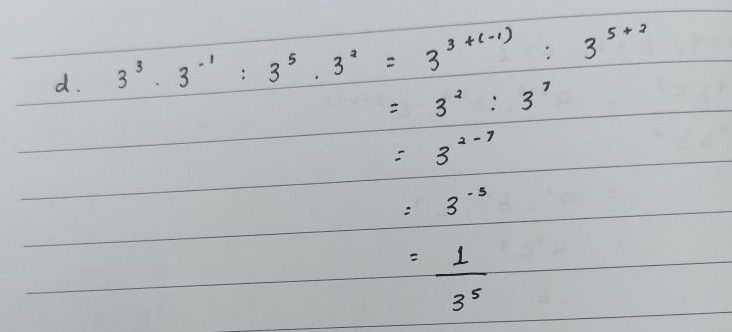 d. 3³ . 3⁻¹ : 3⁵ . 3² = 3³⁺⁽⁻¹⁾ : 3⁵⁺²
= 3² : 3⁷
= 3²⁻⁷
= 3⁻⁵
= 1
3⁵